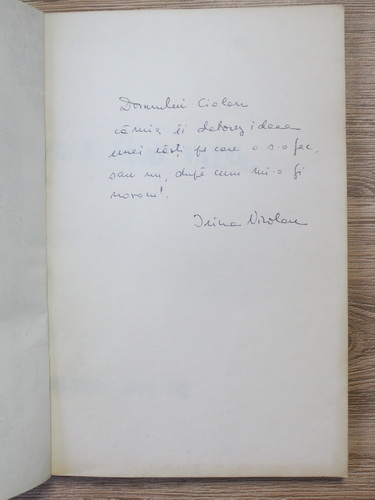 Domnului Ciolan
căruia îi datorez ideea
unei cărți pe care o s-o fac,
sau nu, după cum mi-o fi
norocul!
Irina Nicolau